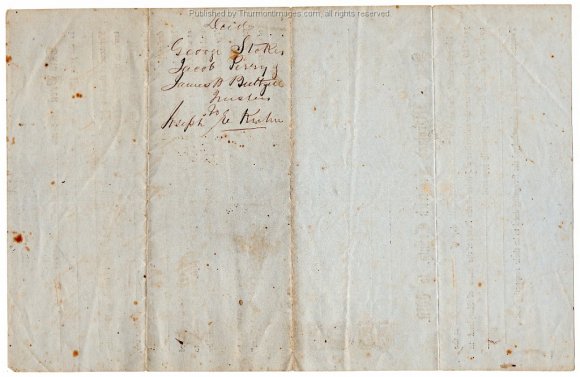 Published by Thurmontimages.com, all rights reserved
Deed
George Stokes
Jacob Perry &
James B
Trustees
To
Joseph E Kuhn